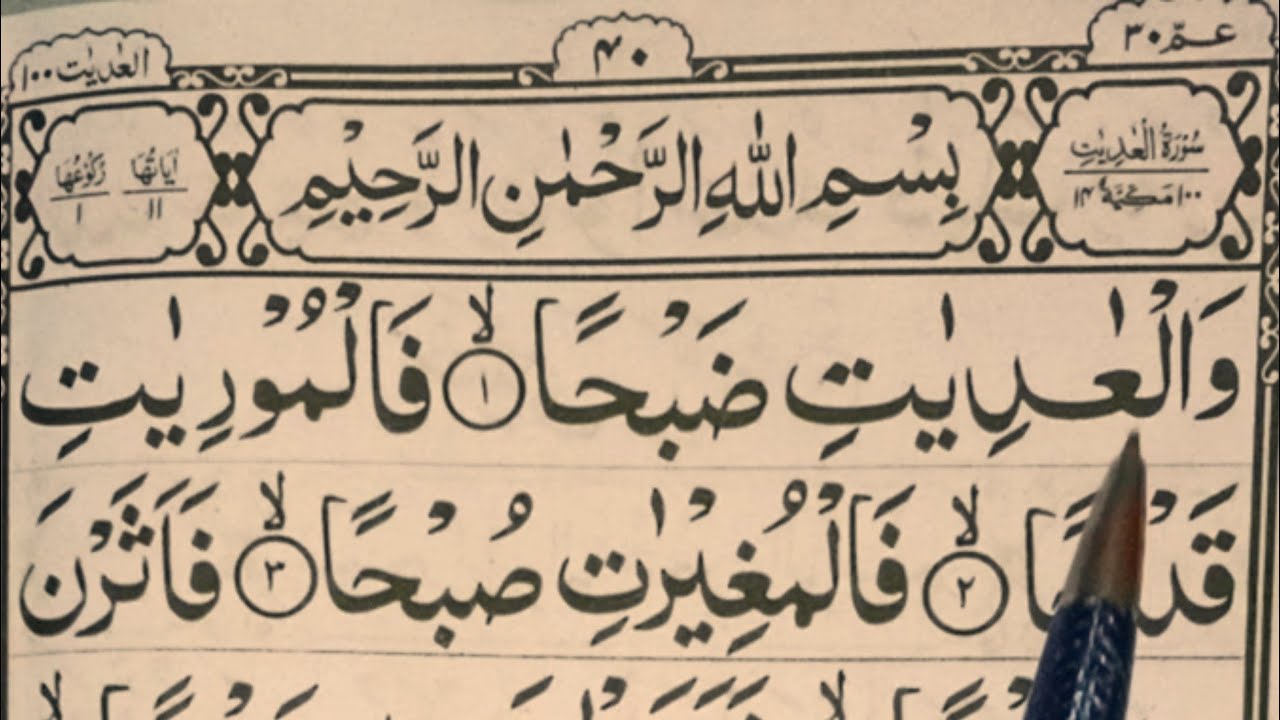 عمّ ٣٠
٤٠
العٰديٰت ١٠٠
سُوْرَةُ الْعٰدِيٰتِ
١٠٠ مَكِّيَّةٌ ١٤
بِسْمِ اللّٰهِ الرَّحْمٰنِ الرَّحِيْمِ
اٰيَاتُهَا ١١
رُكُوْعُهَا ١
وَالْعٰدِيٰتِ ضَبْحًا ۙ ١ فَالْمُوْرِيٰتِ
ۙ ٢ فَالْمُغِيْرٰتِ صُبْحًا ۙ ٣ فَاَثَرْنَ